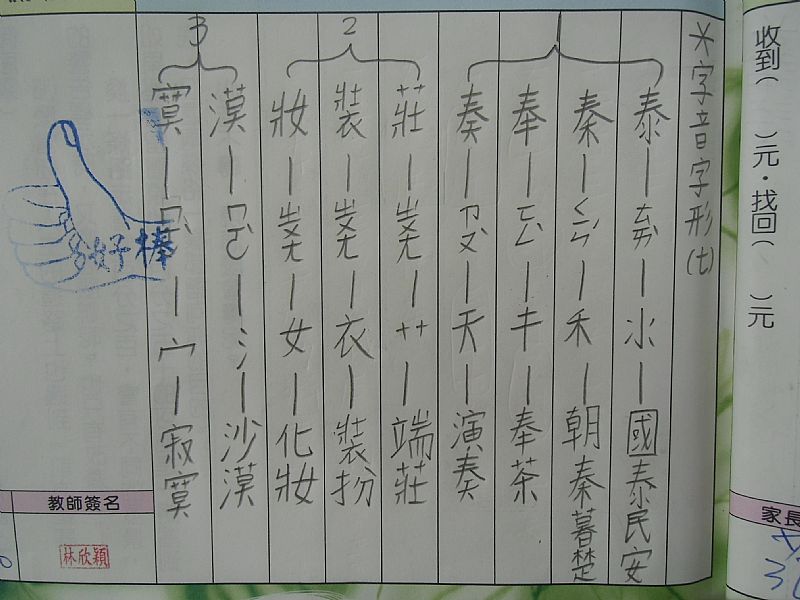 收到(　)元．找回(　)元
家長
*字音字形(七)
1
泰—ㄊㄞˋ—氺—國泰民安
秦—ㄑㄧㄣˊ—禾—朝秦暮楚
奉—ㄈㄥˋ—キ—奉茶
奏—ㄗㄡˋ—天—演奏
2
莊—ㄓㄨㄤ—艹—端莊
裝—ㄓㄨㄤ—衣—裝扮
妝—ㄓㄨㄤ—女—化妝
3
漠—ㄇㄛˋ—氵—沙漠
寞—ㄇㄛˋ—宀—寂寞
好棒
教師簽名
林欣穎